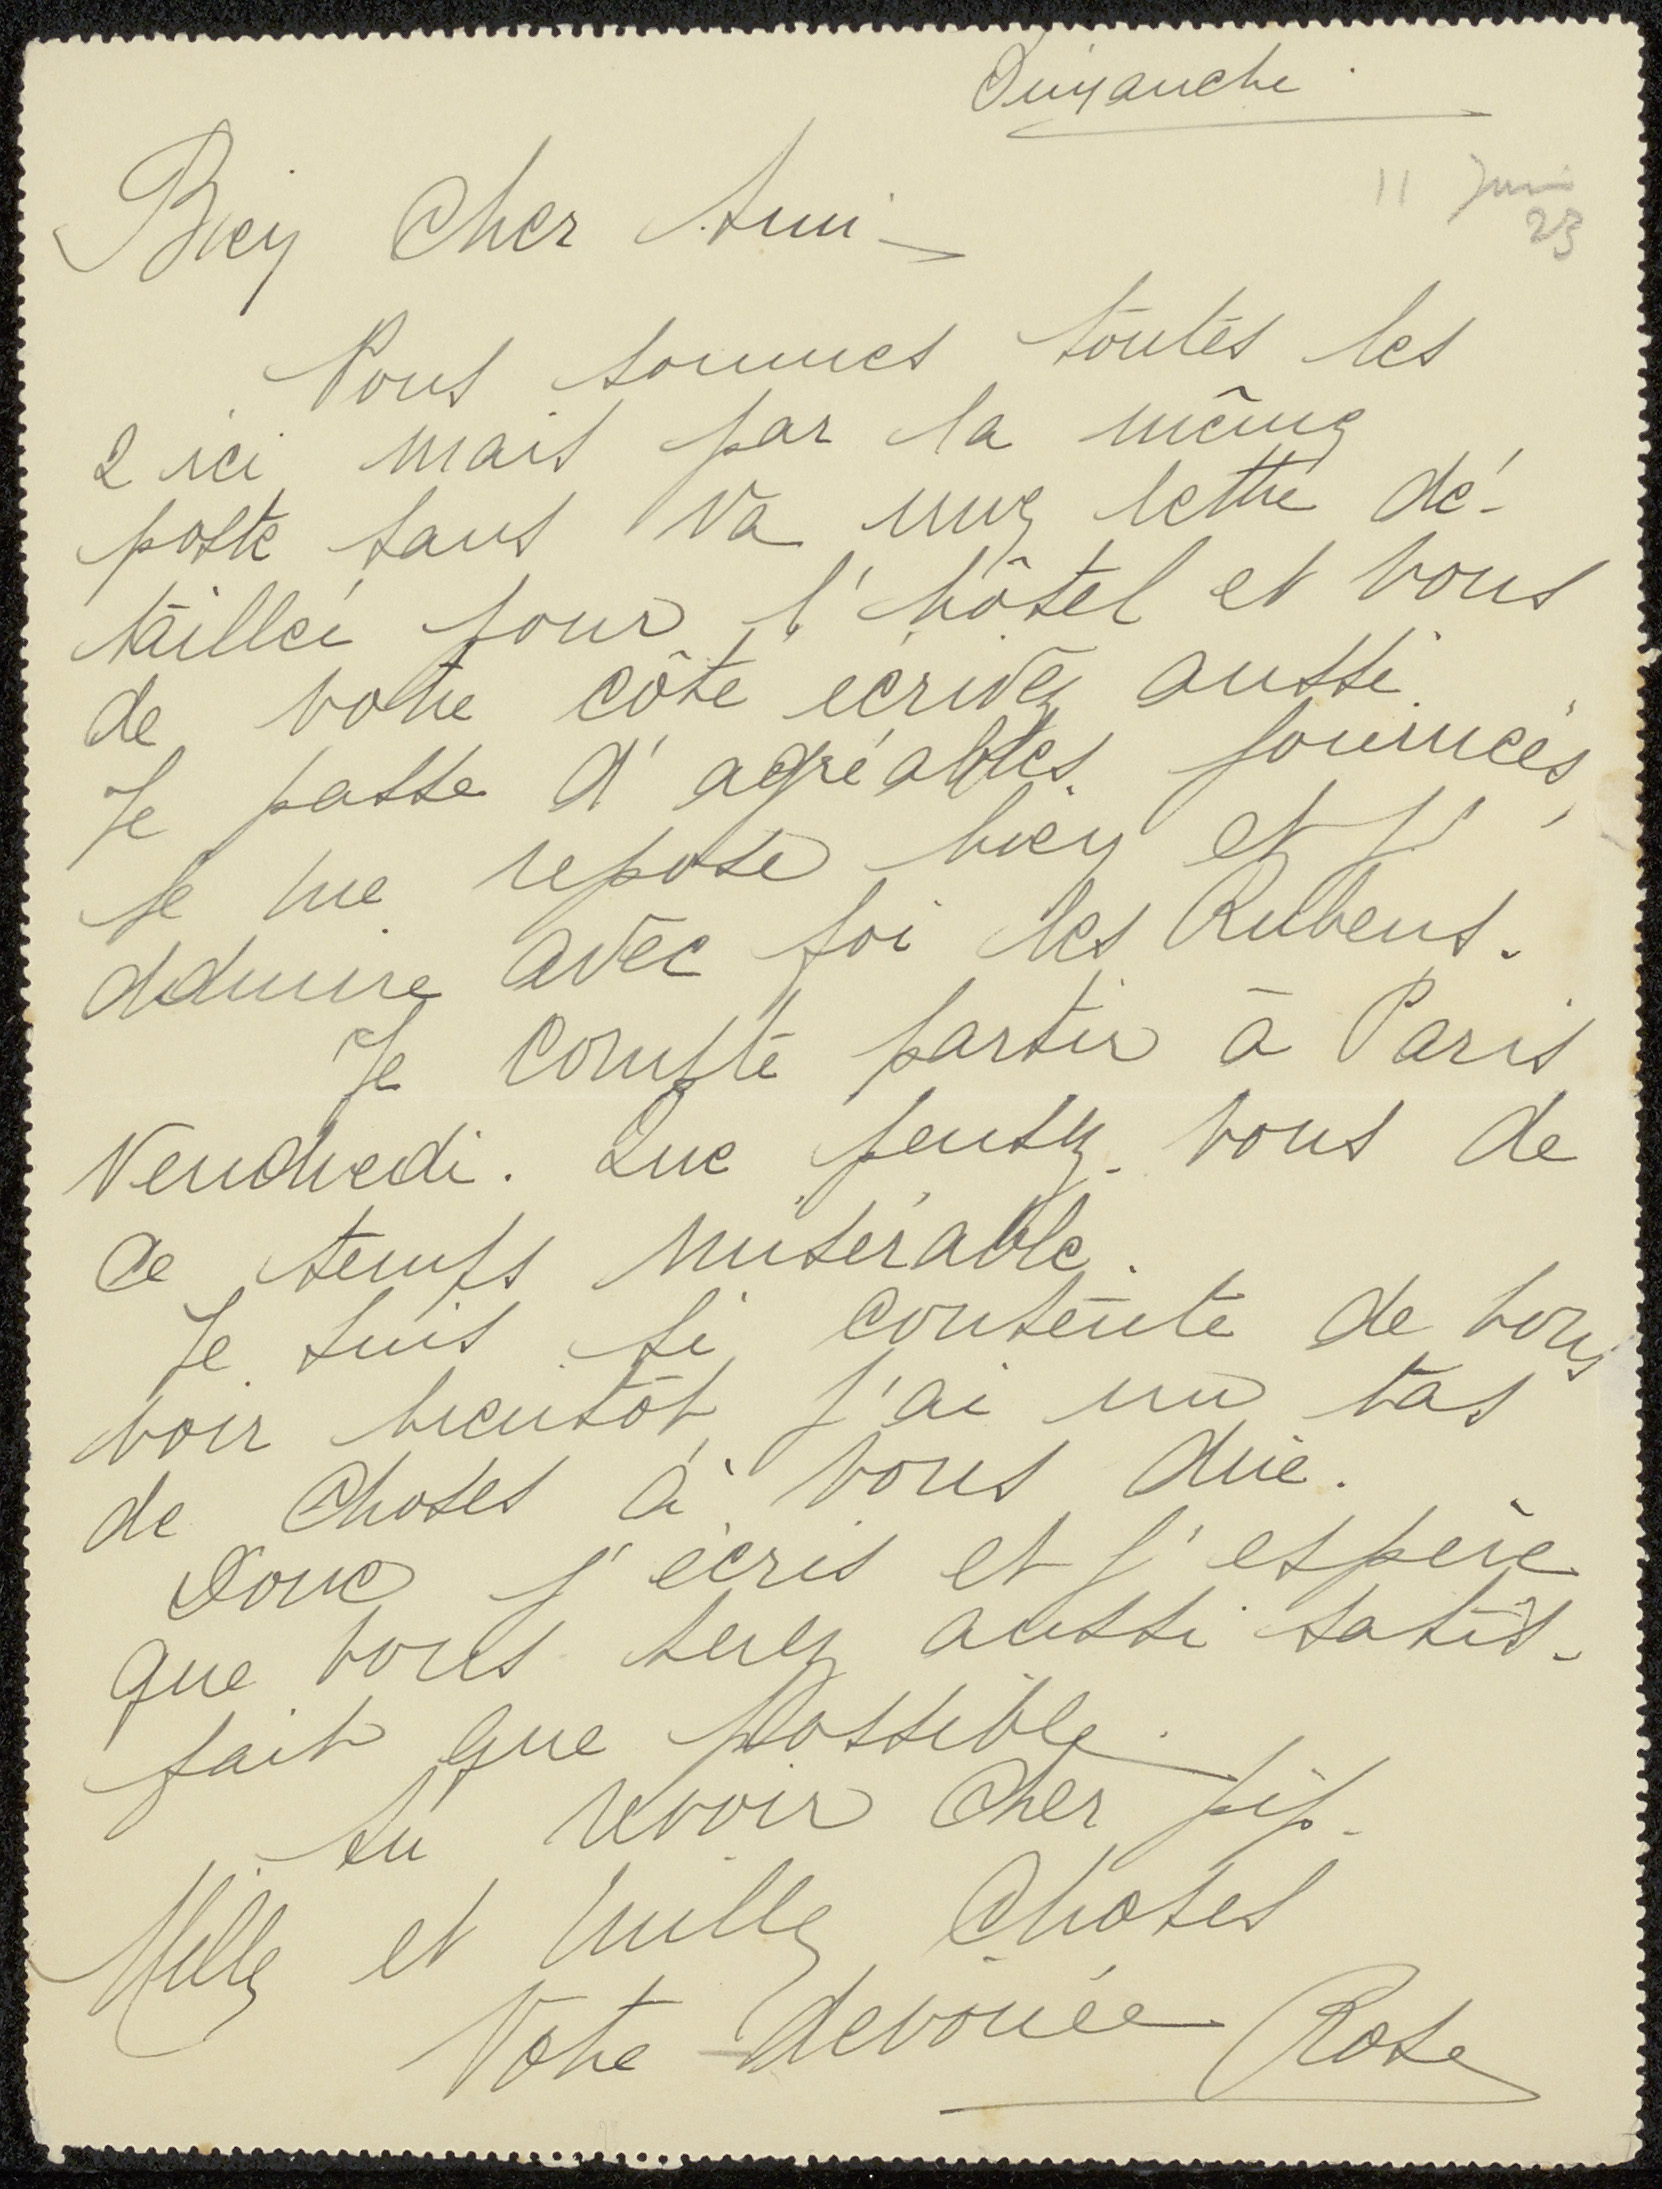 Dimanche.
11 Juin
23
Bien Cher Ami -
Nous sommes toutes les
2 ici mais par la même
poste sans va une lettre dé-
taillée pour l'hôtel et vous
de votre côté écrivez aussi.
Je passe d'agréables journées,
je me repose bien et j'
admire avec foi les Rubens.
Je compte partir à Paris
Vendredi. Que pensez-vous de
ce temps misérable.
Je suis si contente de vous
voir bientôt, j'ai un tas
de choses à vous dire.
Donc j'écris et j'espère
que vous serez aussi satis-
fait que possible.
Au revoir cher pip.
Mille et mille choses
Votre dévouée Rose